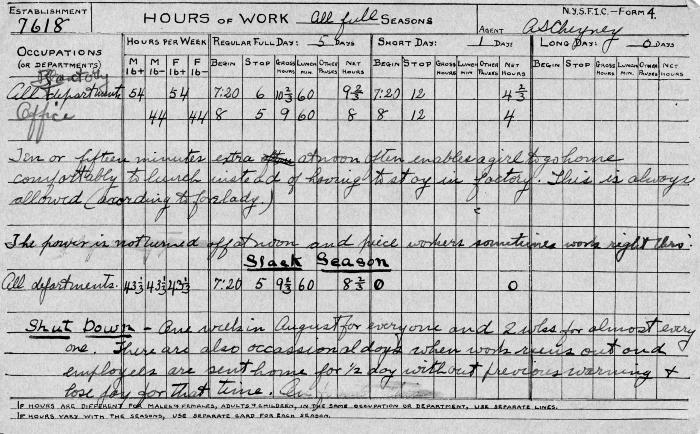 ESTABLISHMENT
7618
HOURS OF WORK All full SEASONS
N.Y.S.F.I.C.-FORM 4.
AGENT A S Cheyney
OCCUPATIONS (OR DEPARTMENTS)
HOURS PER WEEK REGULAR FULL DAY: 5 DAYS SHORT DAY: 1 DAY LONG DAY: 0 DAYS
M 16+ M 16- F 16+ F 16- BEGIN STOP GROSS HOURS LUNCH MIN. OTHER PAUSES NET HOURS BEGIN STOP GROSS HOURS LUNCH MIN. OTHER PAUSES NET HOURS BEGIN STOP GROSS HOURS LUNCH MIN. OTHER PAUSES NET HOURS
Factory
All departments 54 54 7:20 6 10 2/3 60 9 2/3 7:20 12 4 2/3
Office 44 44 8 5 9 60 8 8 12 4
Ten or fifteen minutes extra at noon often enables a girl to go home
comfortably to lunch instead of having to stay in factory. This is always
allowed (acording to forelady.)
The power is not turned off at noon and piece workers sometimes work right thro'.
Slack Season
All departments. 43 1/3 43 1/3 43 1/3 7:20 5 9 2/3 60 8 2/3 0 0
Shut Down - One week in August for everyone and 2 wks for almost every
one. There are also occassional days when work runs out and
employees are sent home for 1/2 day without previous warning &
lose pay for that time.
IF HOURS ARE DIFFERENT FOR MALES & FEMALES, ADULTS & CHILDREN, IN THE SAME OCCUPATION OR DEPARTMENT, USE SEPARATE LINES.
IF HOURS VARY WITH THE SEASONS, USE SEPARATE CARD FOR EACH SEASON.